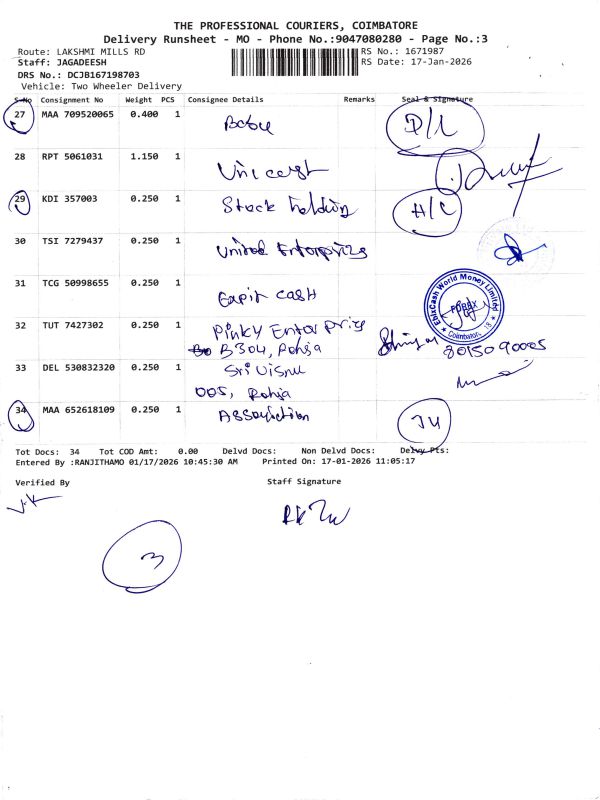 THE PROFESSIONAL COURIERS, COIMBATORE
Delivery Runsheet - MO - Phone No.:9047080280 - Page No.:3
Route: LAKSHMI MILLS RD
RS No.: 1671987
Staff: JAGADEESH
RS Date: 17-Jan-2026
DRS No.: DCJB167198703
Vehicle: Two Wheeler Delivery
S.No Consignment No Weight PCS Consignee Details Remarks Seal & Signature
27 MAA 709520065 0.400 1
28 RPT 5061031 1.150 1
29 KDI 357003 0.250 1 Stock holding H/C
30 TSI 7279437 0.250 1 United Enterprizes
31 TCG 50998655 0.250 1 cash
EbixCash World Money Limited
FOREX
Coimbatore. 18
32 TUT 7427302 0.250 1 Pinky Enterprise
B304, 8015090005
33 DEL 530832320 0.250 1 Sri
005,
34 MAA 652618109 0.250 1
Tot Docs: 34 Tot COD Amt: 0.00 Delvd Docs: Non Delvd Docs: Delvy Pts:
Entered By :RANJITHAMO 01/17/2026 10:45:30 AM Printed On: 17-01-2026 11:05:17
Verified By Staff Signature
3